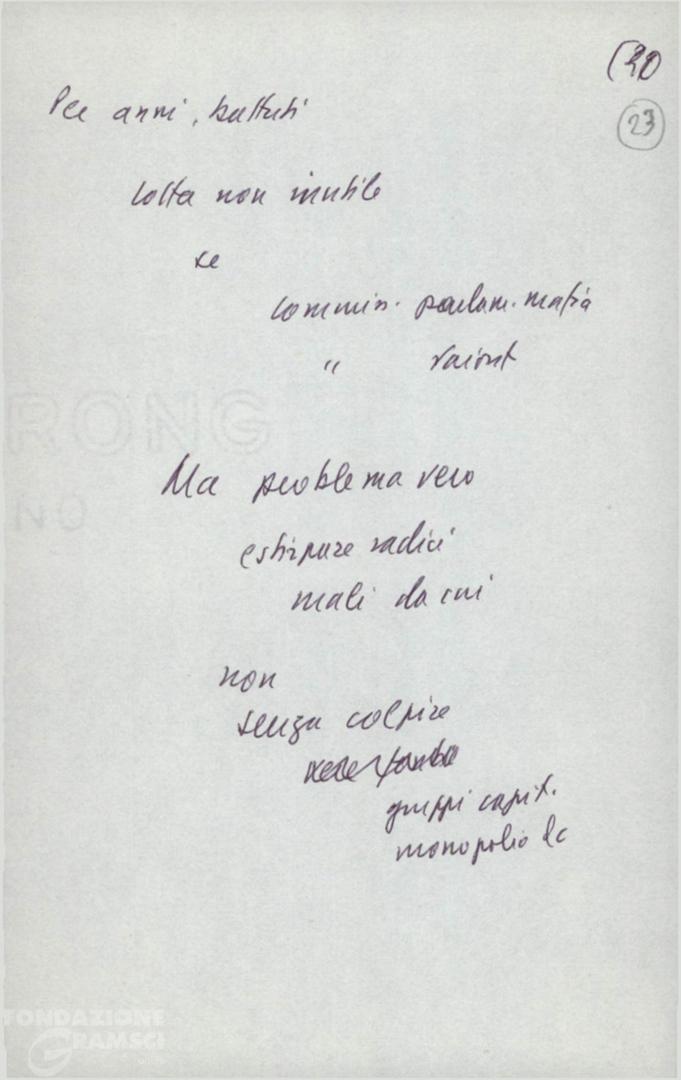 (30
23
Per anni, battuti
lotta non inutile
se
commiss. parlam. mafia
" Vaiont
RONG
NO
Ma problema vero
estirpare radici
mali da cui
non
senza colpire
gruppi capit.
monopolio dc
FONDAZIONE
GRAMSCI